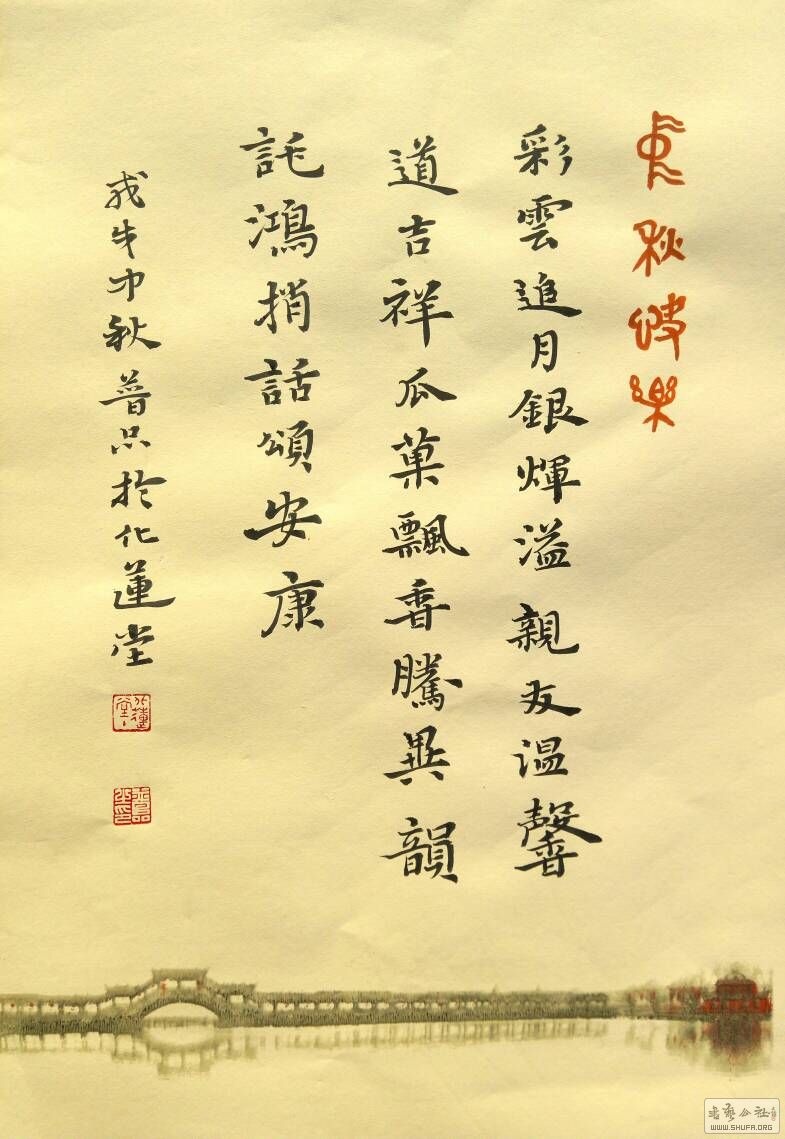 中秋快樂
彩雲追月銀煇溢親友温馨
道吉祥瓜菓飄香騰異韻
託鴻捎話頌安康
戌年中秋普品於化蓮堂
化蓮堂
書藝公社
WWW.SHUFA.ORG